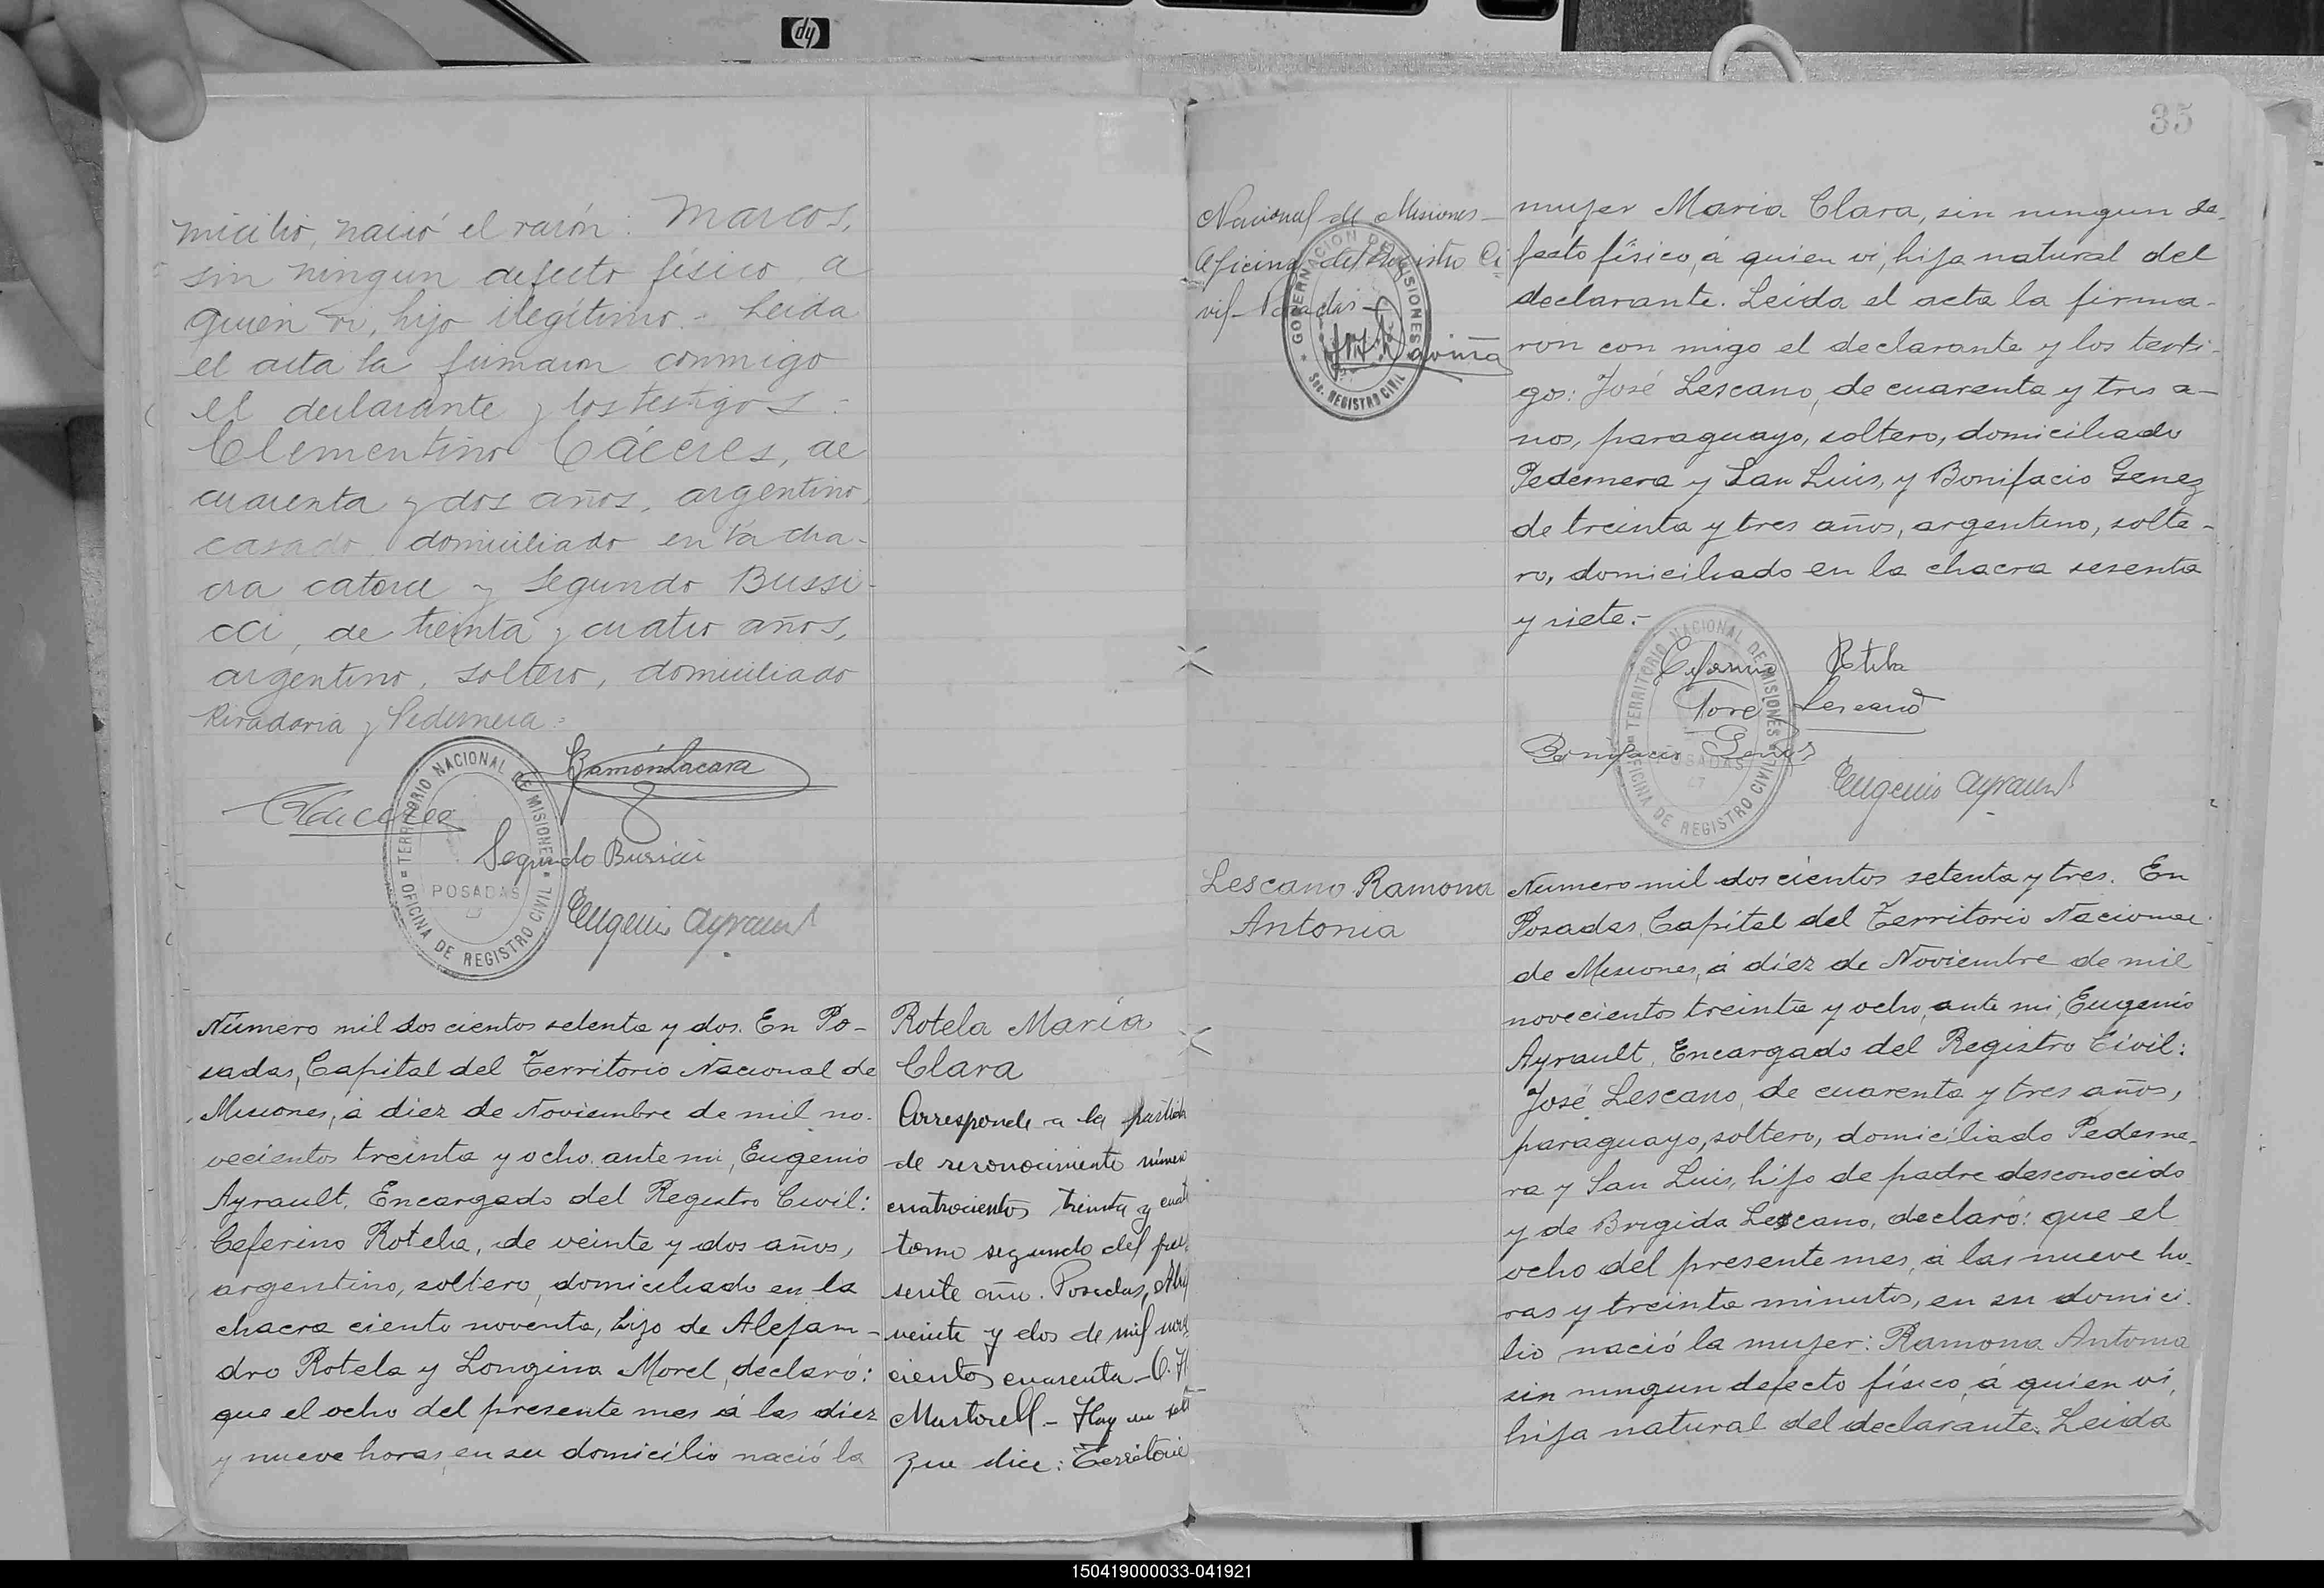 hp
micilio, nació el varón: Marcos,
sin ningun defecto físico, a
quien vi, hijo ilegítimo.- Leida
el acta la firmaron conmigo
el declarante y los testigos:
Clementino Cáceres, de
cuarenta y dos años, argentino,
casado, domiciliado en la cha-
cra catorce y Segundo Bussi-
cci, de treinta y cuatro años,
argentino, soltero, domiciliado
Rivadavia y Pedernera.
Ramón Lacava
TERRITORIO NACIONAL DE MISIONES
POSADAS
OFICINA DE REGISTRO CIVIL
Segundo Bussicci
Eugenio Ayrault
Número mil doscientos setenta y dos. En Po-
sadas, Capital del Territorio Nacional de
Misiones, á diez de Noviembre de mil no-
vecientos treinta y ocho, ante mi, Eugenio
Ayrault, Encargado del Registro Civil:
Ceferino Rotela, de veinte y dos años,
argentino, soltero, domiciliado en la
chacra ciento noventa, hijo de Alejan-
dro Rotela y Longina Morel, declaró:
que el ocho del presente mes á las diez
y nueve horas, en su domicilio nació la
Rotela María
Clara
Corresponde a la partida
de reconocimiento número
cuatrocientos treinta y
tomo segundo del pre-
sente año. Posadas,
veinte y dos de mil nove
cientos cuarenta -
Martorell - Hay un
que dice: Territorio
35
Nacional de Misiones -
Oficina del Registro Ci
vil - Posadas -
GOBERNACION DE MISIONES
SEC. REGISTRO CIVIL
mujer Maria Clara, sin ningun de-
fecto físico, á quien vi, hija natural del
declarante. Leida el acta la firma-
ron con migo el declarante y los testi-
gos: José Lescano, de cuarenta y tres a-
nos, paraguayo, soltero, domiciliado
Pedernera y San Luis, y Bonifacio Genez
de treinta y tres años, argentino, solte-
ro, domiciliado en la chacra sesenta
y siete.-
Ceferino Rotela
José Lescano
Bonifacio Genes
TERRITORIO NACIONAL DE MISIONES
POSADAS
OFICINA DE REGISTRO CIVIL
Eugenio Ayrault
Lescano Ramona
Antonia
Numero mil doscientos setenta y tres. En
Posadas, Capital del Territorio Nacional
de Misiones, á diez de Noviembre de mil
novecientos treinta y ocho, ante mi, Eugenio
Ayrault, Encargado del Registro Civil:
José Lescano, de cuarenta y tres años,
paraguayo, soltero, domiciliado Pederne-
ra y San Luis, hijo de padre desconocido
y de Brigida Lescano, declaró: que el
ocho del presente mes, á las nueve ho-
ras y treinta minutos, en su domici-
lio nació la mujer: Ramona Antonia
sin ningun defecto físico, á quien vi,
hija natural del declarante. Leida
150419000033-041921